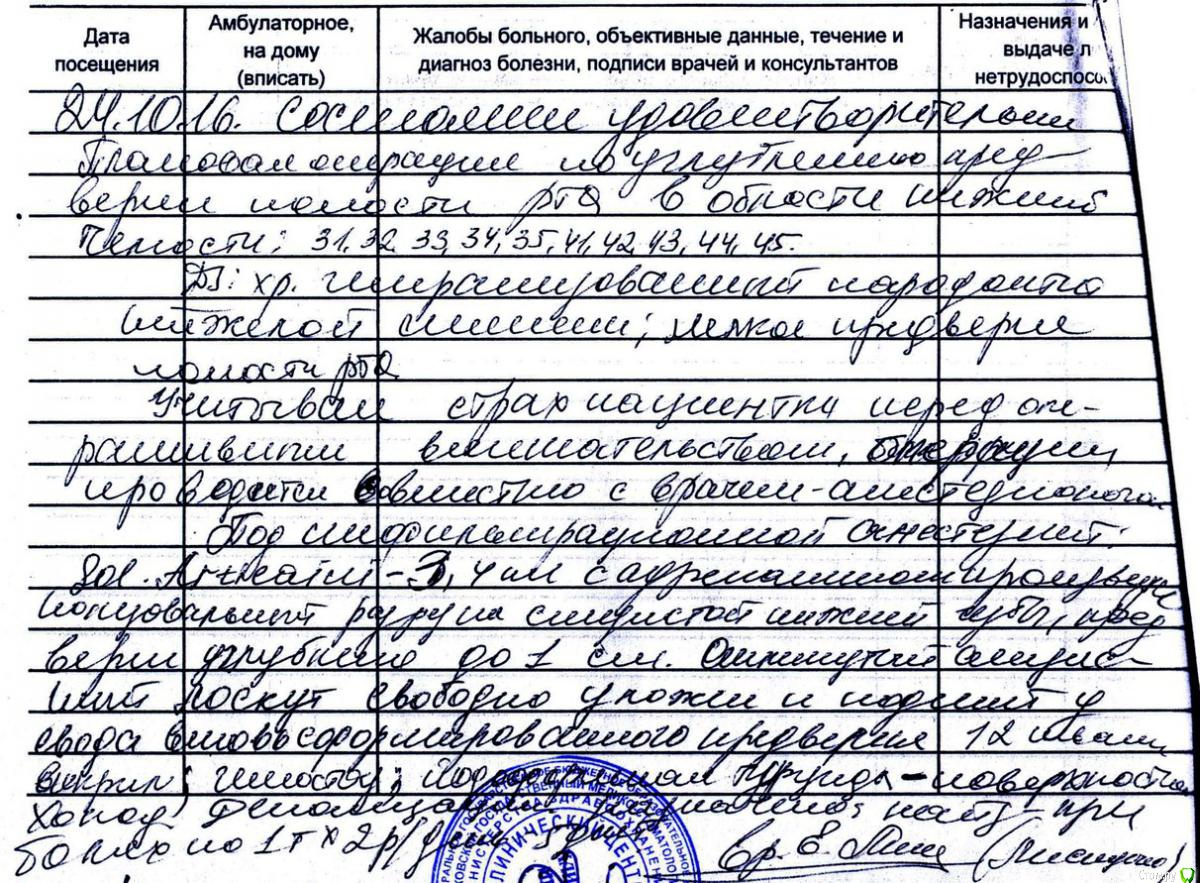 Дата посещения
Амбулаторное, на дому (вписать)
Жалобы больного, объективные данные, течение и диагноз болезни, подписи врачей и консультантов
Назначения и
выдаче л
нетрудоспосо
24.10.16. Состояние удовлетворительн
Плановая операция по углублению пред
верия полости рта в области нижней
челюсти: 31, 32, 33, 34, 35, 41, 42, 43, 44, 45.
Дз: хр. генерализованный пародонтит
тяжелой степени; мелкое преддверие
полости рта
Учитывая страх пациентки перед опе-
ративным вмешательством, операция
проводится совместно с врачем-анестезиологом
Под инфильтрационной анестезией
Sol. -3,4 мл с адреналином произведен
разрез на слизистой нижней губы, пред
верие углублено до 1 см.
лоскут свободно уложен и подшит у
свода вновьсформированного преддверия 12 швами
викрил; гемостаз; повязка -
Холод! при
болях по 1т х 2р/день
Вр. Е.
КЛИНИЧЕСКИЙ ЦЕНТР